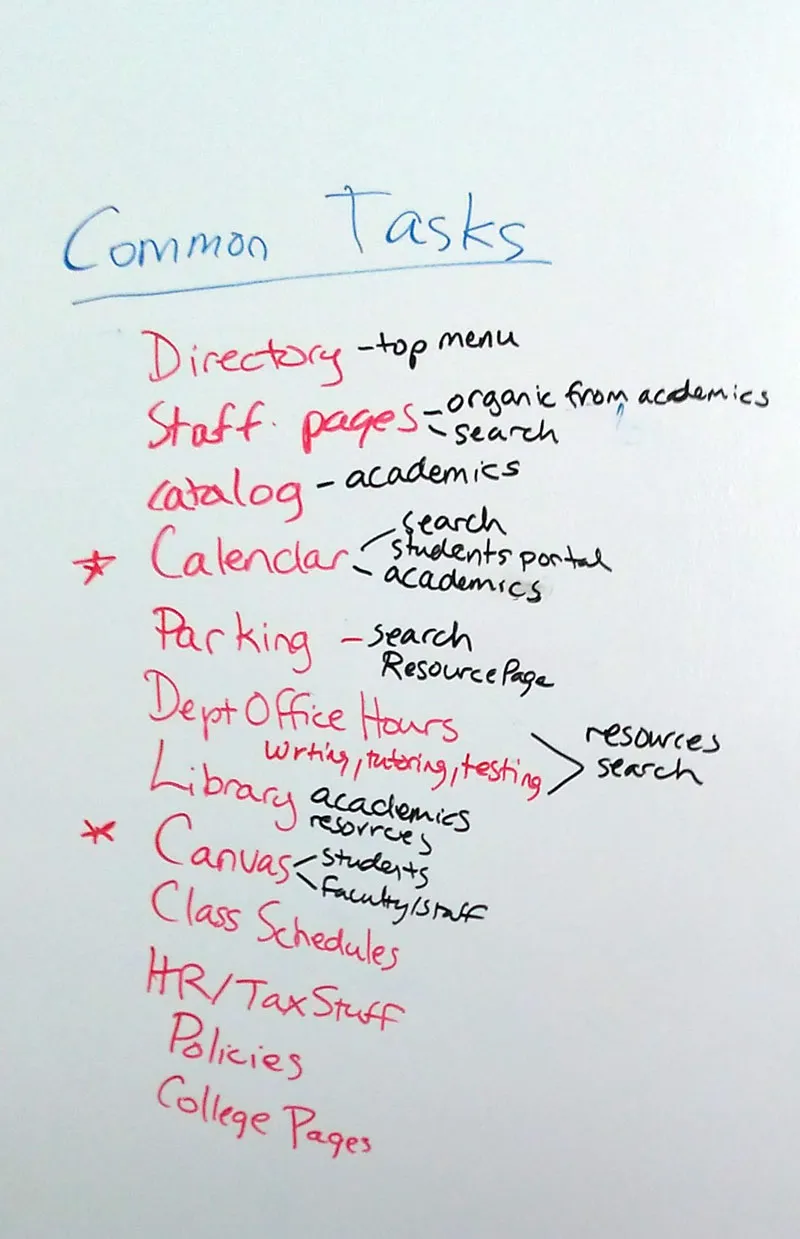 Common Tasks
Directory - top menu
Staff pages - organic from academics
- search
catalog - academics
search
* Calendar - students portal
- academics
Parking - search
Resource Page
Dept Office Hours
resources
writing, tutoring, testing search
Library academics
resources
* Canvas - students
- faculty/staff
Class Schedules
HR/Tax Stuff
Policies
College Pages